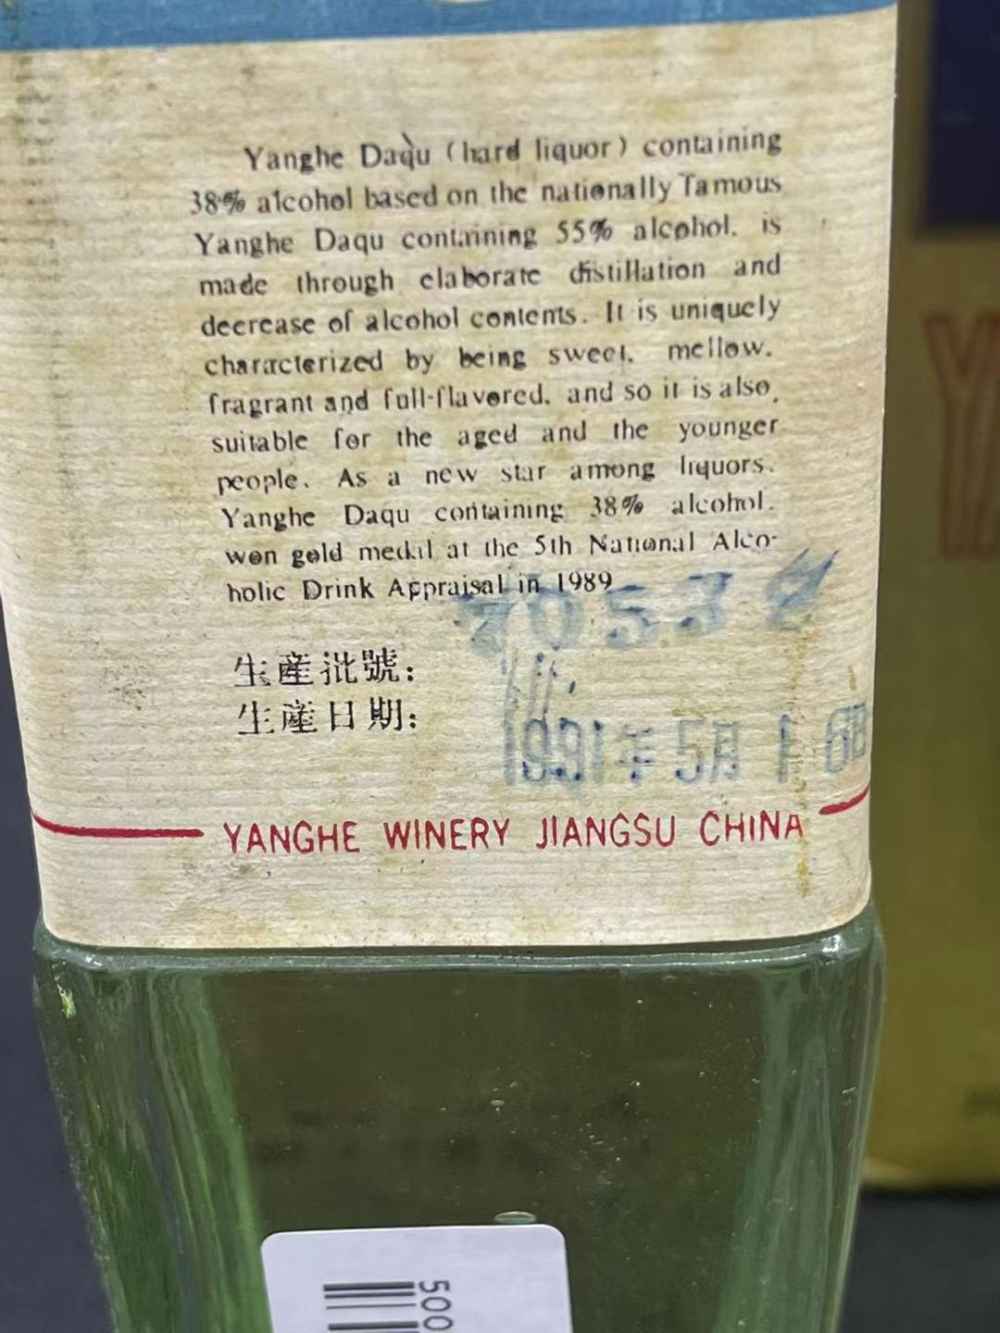 Yanghe Daqu (hard liquor) containing
38% alcohol based on the nationally famous
Yanghe Daqu containing 55% alcohol. is
made through elaborate distillation and
decrease of alcohol contents. It is uniquely
characterized by being sweet, mellow.
fragrant and full-flavored. and so it is also
suitable for the aged and the younger
people. As a new star among liquors.
Yanghe Daqu containing 38% alcohol.
won gold medal at the 5th National Alco-
holic Drink Appraisal in 1989
生産批號:
生産日期: 1991年5月16日
YANGHE WINERY JIANGSU CHINA
500